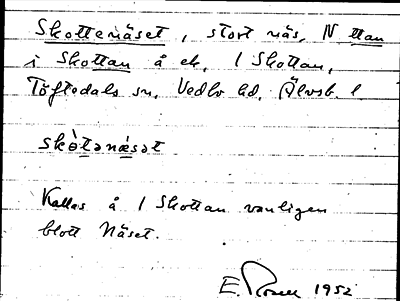 Skottenäset, stort näs, N ttan
i Skottan å ek. 1 Skottan,
Töftedals sn, Vedbo hd, Älvsb. l
skòtənæ̀sət
Kallas å 1 Skottan vanligen
blott Näset.
E. Rosell 1952